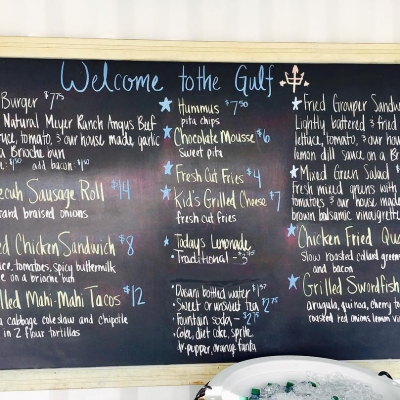 Welcome to the Gulf
Burger $7.75
Natural Meyer Ranch Angus Beef
tomato, & our house made garlic
a Brioche bun
add bacon
Sausage Roll $14
braised onions
Chicken Sandwich $8
tomatoes, spicy buttermilk
on a brioche bun
Mahi-Mahi Tacos $12
cabbage coleslaw and chipotle
in 2 flour tortillas
Hummus $7.50
pita chips
Chocolate Mousse $6
sweet pita
Fresh Cut Fries $4
Kid's Grilled Cheese $7
fresh cut fries
Today's Lemonade
• Traditional -
• Dasani bottled water
• Sweet or unsweet tea $2.75
• Fountain soda - $2.75
• Coke, diet coke, sprite,
dr. pepper, orange fanta
Fried Grouper Sandw
Lightly battered & fried
lettuce, tomato, & our hous
lemon dill sauce on a Br
Mixed Green Salad $
Fresh mixed greens with
tomatoes & our house made
brown balsamic vinaigrette
Chicken Fried Qua
Slow roasted collard greens
and bacon
Grilled Swordfish
arugula, quinoa, cherry to
roasted red onions, lemon vin